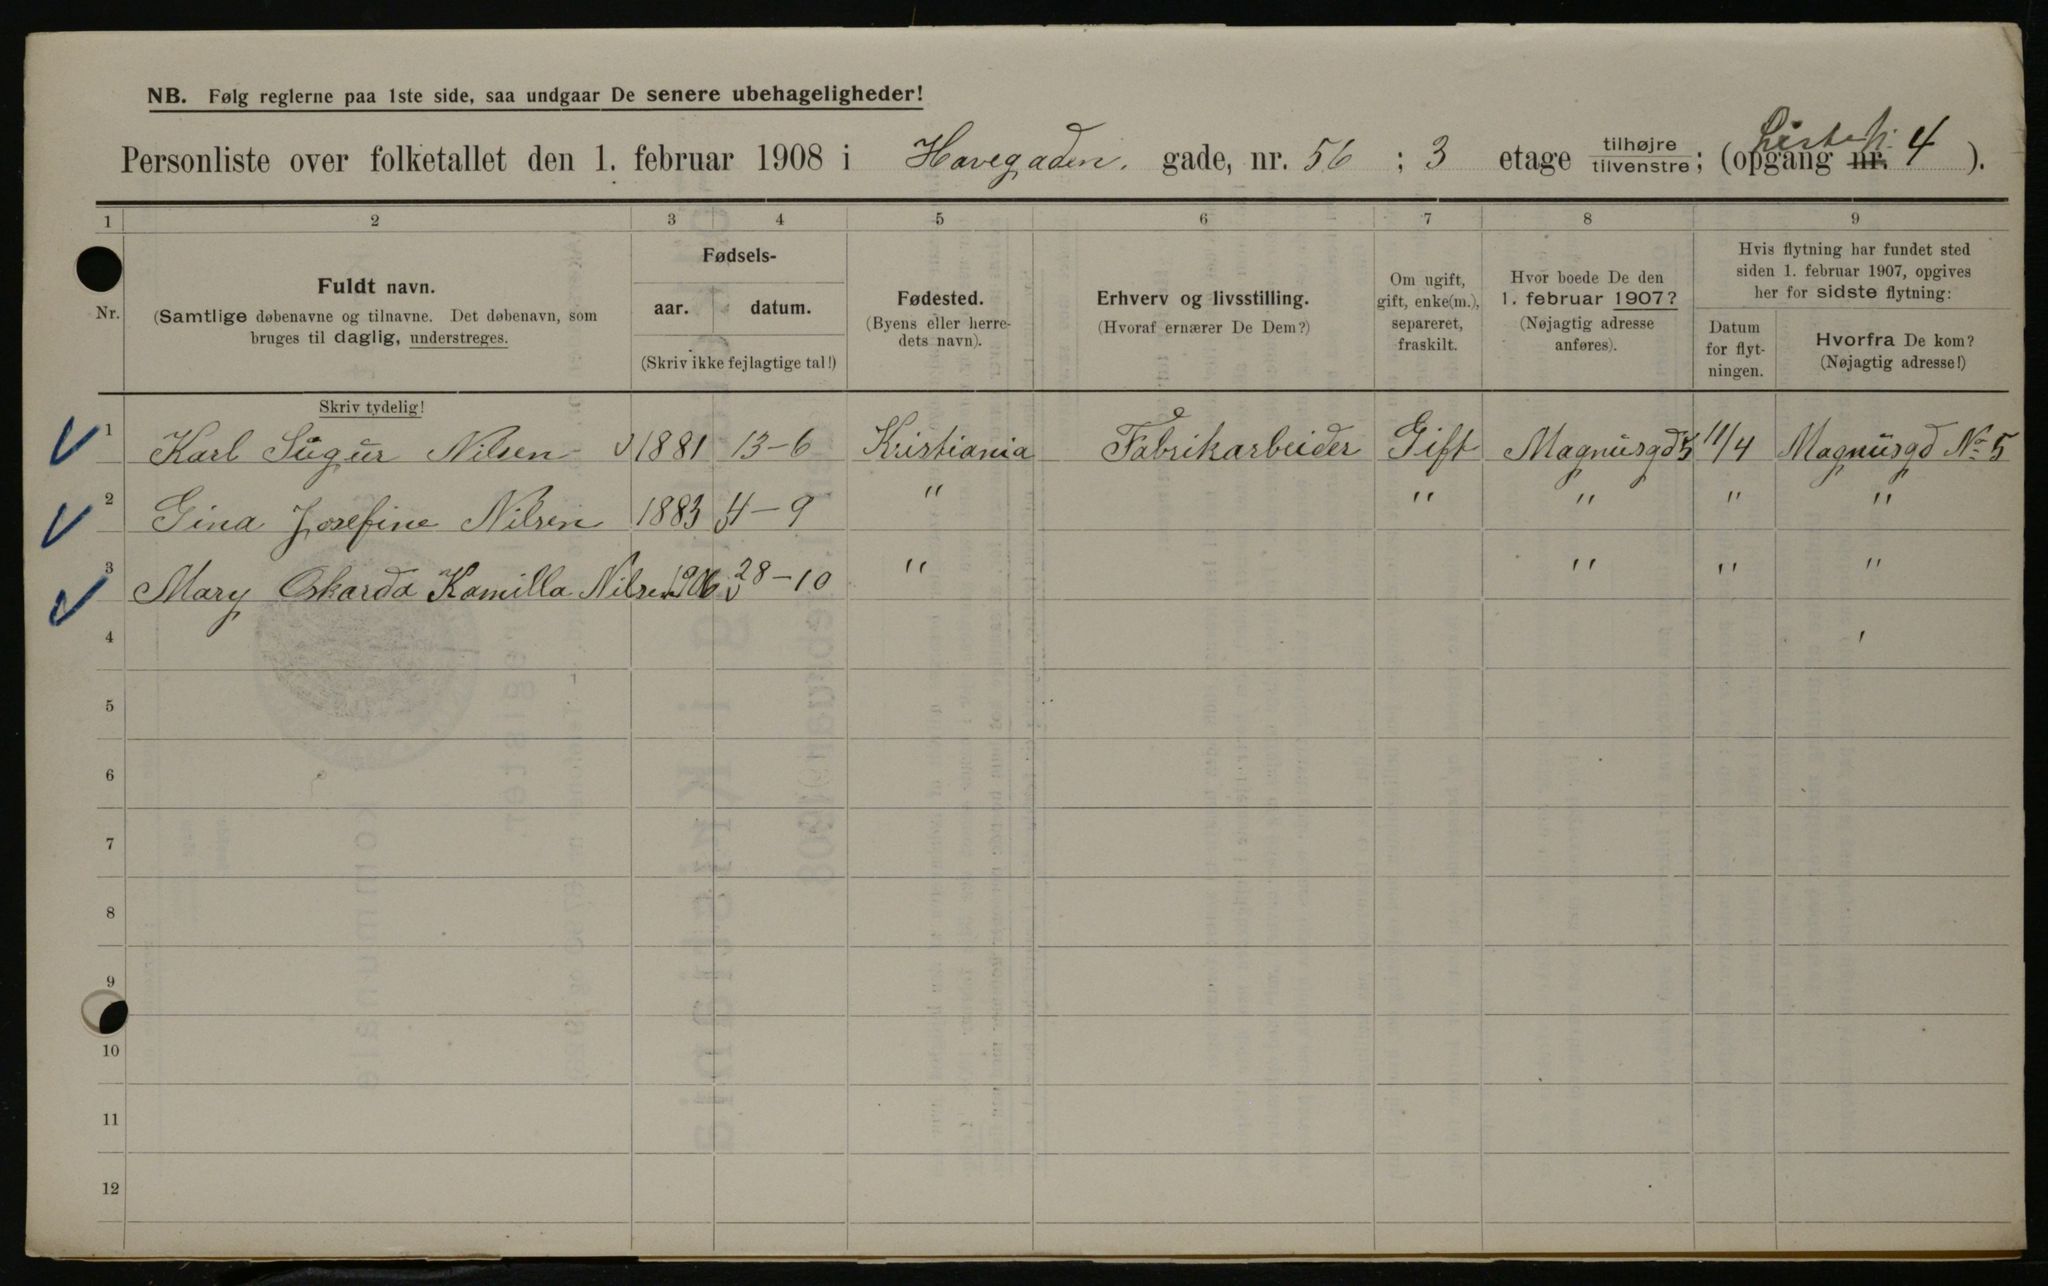 NB. Følg reglerne paa 1ste side, saa undgaar De senere ubehageligheder!
Personliste over folketallet den 1. februar 1908 i Havegaden. gade, nr. 56 ; 3 etage tilhøjre / tilvenstre ; (opgang nr. Liste 4 ).
1 2 3 4 5 6 7 8 9
Nr.
Fuldt navn.
(Samtlige døbenavne og tilnavne. Det døbenavn, som
bruges til daglig, understreges.
Fødsels-
aar. datum.
(Skriv ikke fejlagtige tal!)
Fødested.
(Byens eller herre-
dets navn).
Erhverv og livsstilling.
(Hvoraf ernærer De Dem?)
Om ugift,
gift, enke(m.),
separeret,
fraskilt.
Hvor boede De den
1. februar 1907?
(Nøjagtig adresse
anføres).
Hvis flytning har fundet sted
siden 1. februar 1907, opgives
her for sidste flytning:
Datum
for flyt-
ningen.
Hvorfra De kom?
(Nøjagtig adresse!)
Skriv tydelig!
1 Karl Sugur Nilsen 1881 13-6 Kristiania Fabrikarbeider Gift Magnusgd 5 11/4 Magnusgd No 5
2 Gina Josefine Nilsen 1883 4-9 " " " " "
3 Mary Oskarda Kamilla Nilsen 1906 28-10 " " " "
4
5
6
7
8
9
10
11
12